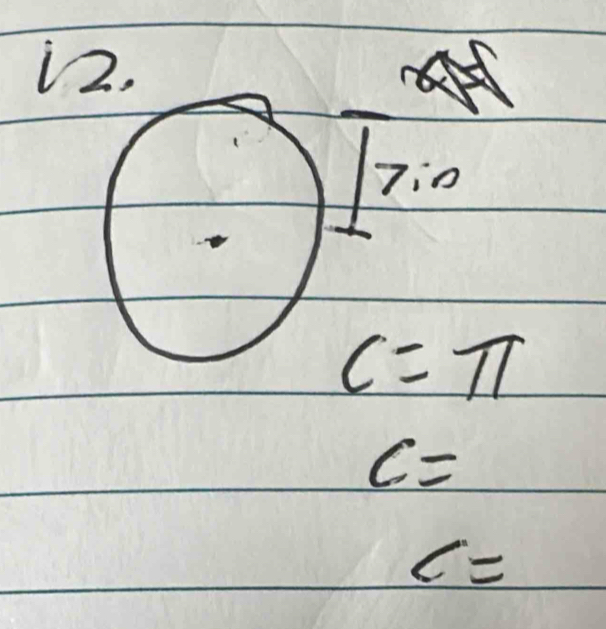 12.
7in
C = π
C =
C =